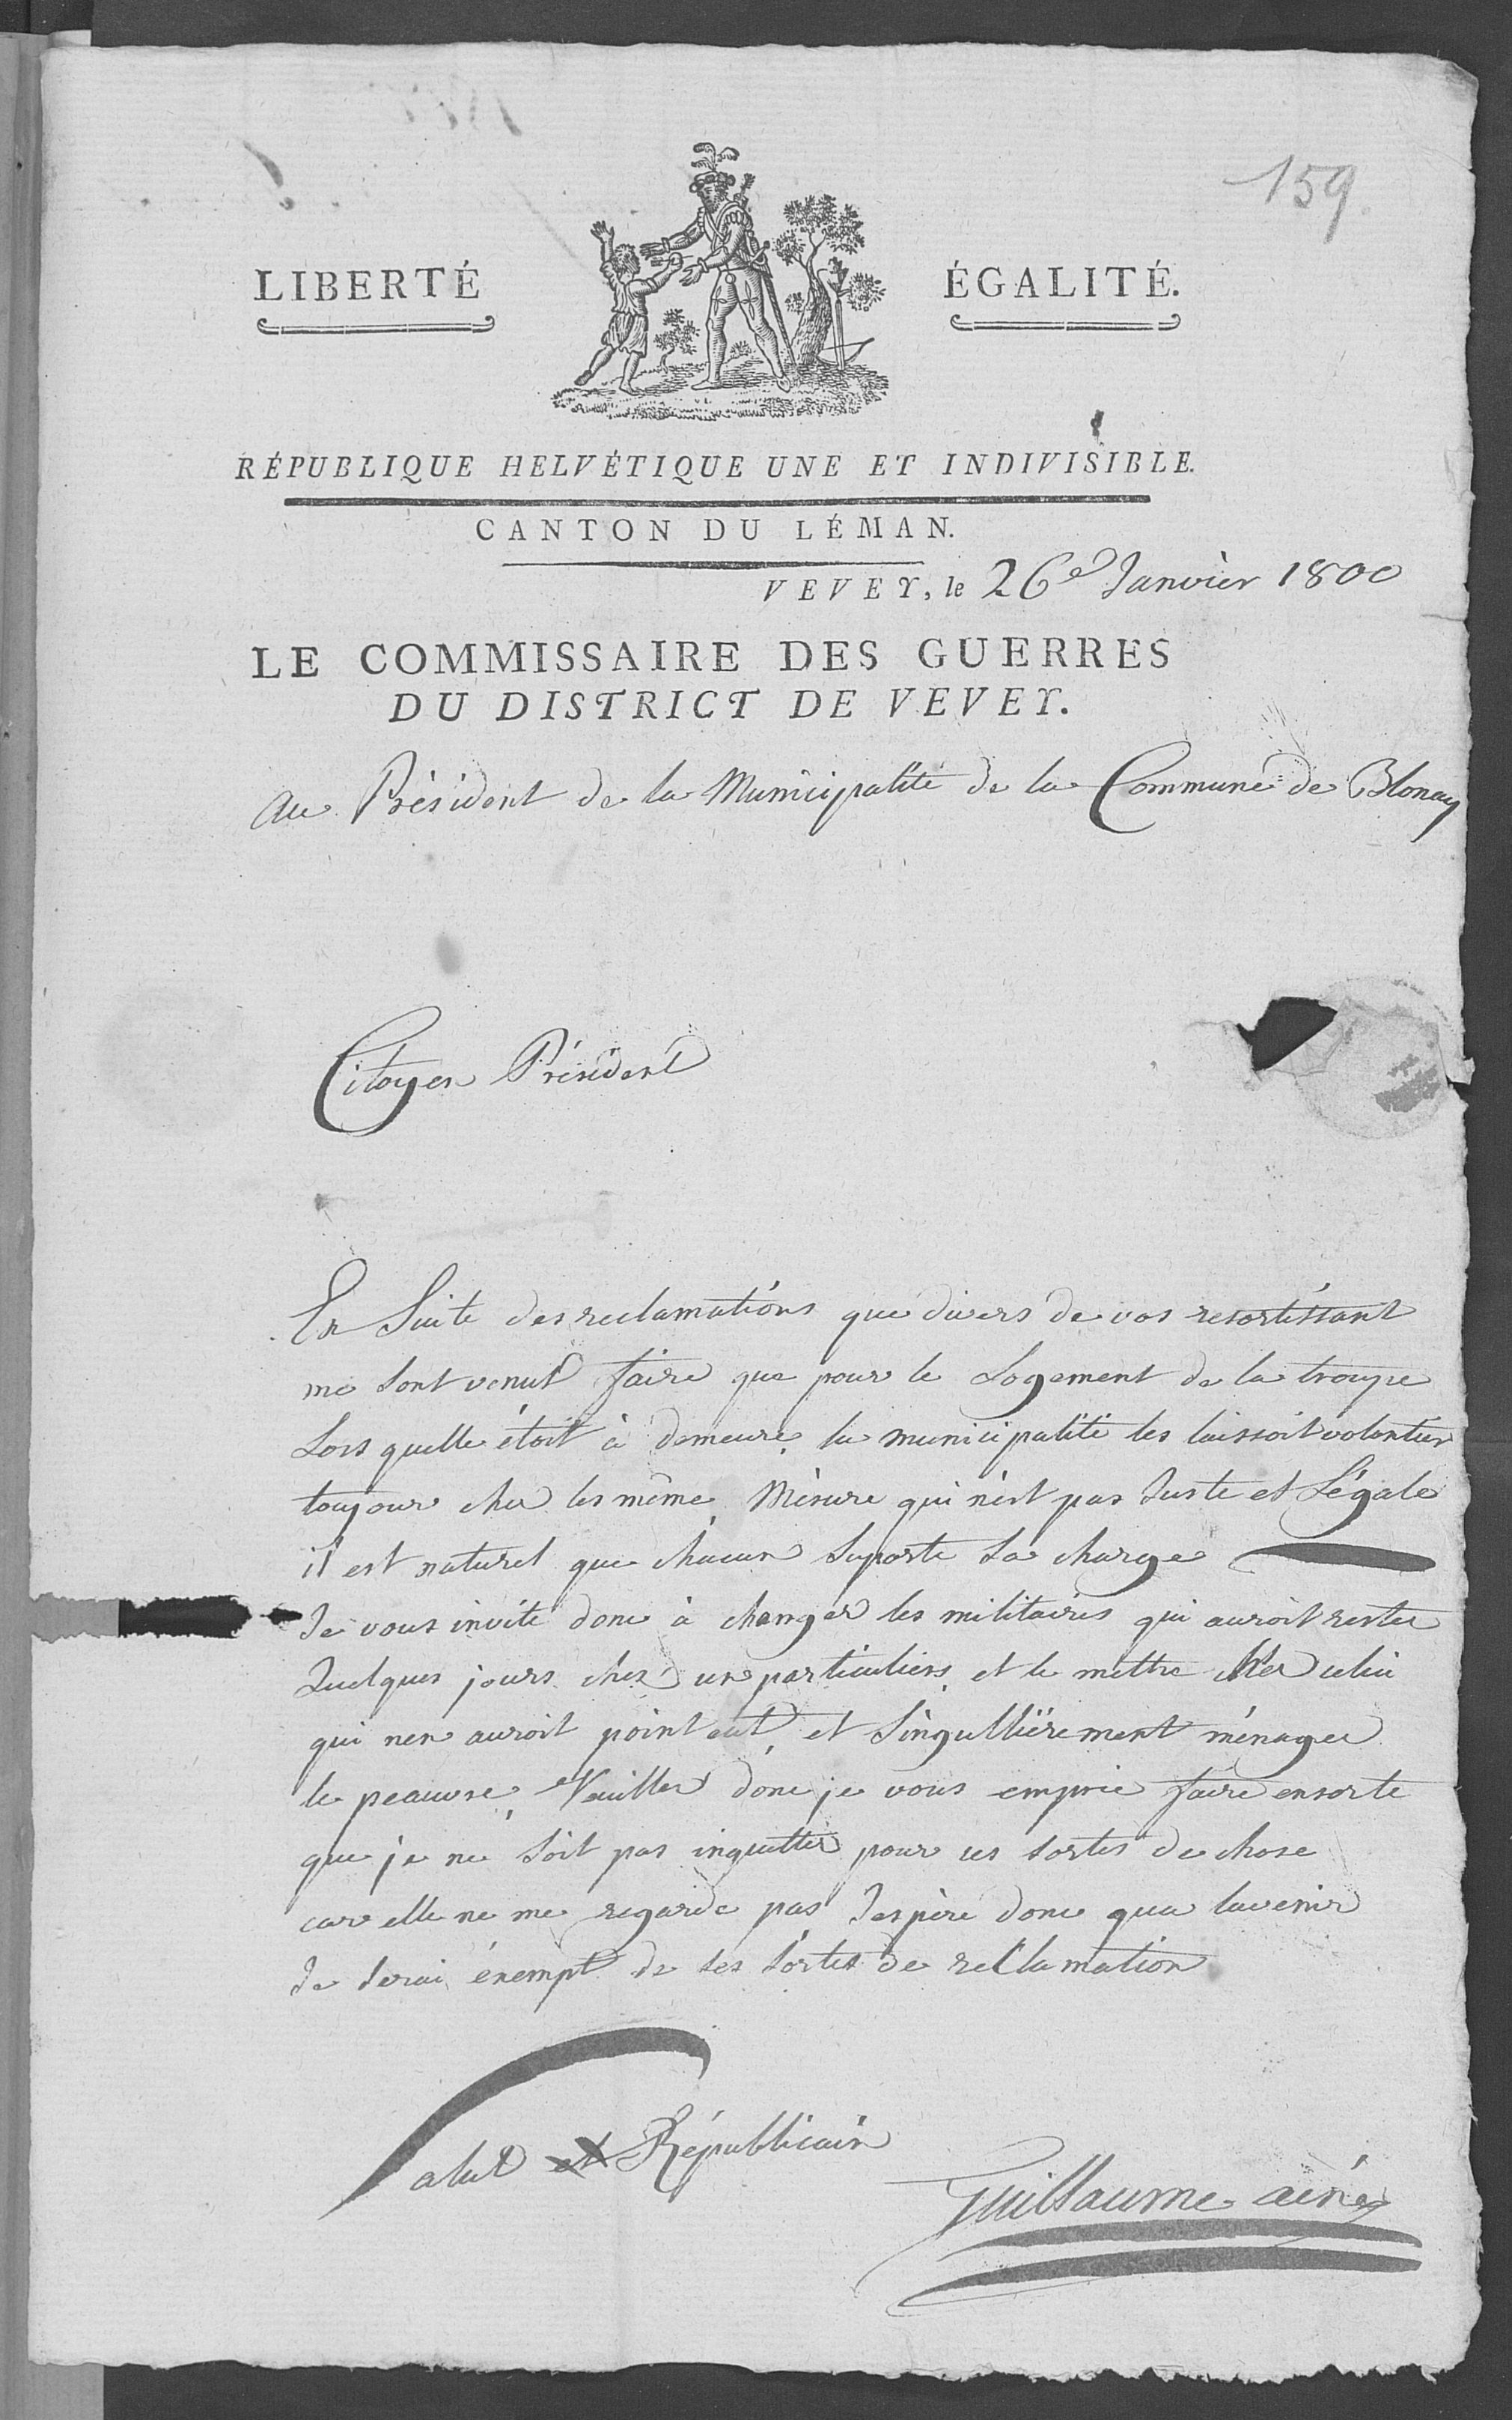 159
LIBERTÉ ÉGALITÉ.
RÉPUBLIQUE HELVÉTIQUE UNE ET INDIVISIBLE.
CANTON DU LÉMAN.
VEVEY, le 26e Janvièr 1800
LE COMMISSAIRE DES GUERRES
DU DISTRICT DE VEVEY.
Au Président de la Municipalité de la Commune de Blonay
Citoyen Président
En Suite des reclamations que divers de vos resortissant
me sont venut faire que pour le Logement de la troupe
Lors quelle étoit à demeure, la municipalité les laissoit volontier
toujour chez les même, Mésure qui n'est pas Juste et Légale
il est naturel que chacun Suporte Sa charge
Je vous invite donc à changer les militaires qui auroit rester
Quelques jours chez un particuliers, et le mettre chez celui
qui nen auroit point eut, et Singulliérement ménager
le peauvre, Veuillez donc je vous emprie faire ensorte
que je ne soit pas inquetter pour ces sortes de chose
car elle ne me regarde pas J'espère donc qua lavenir
Je serai éxempt de ses sortes de reclamation
Salut et Républicain
Guillaume ainé